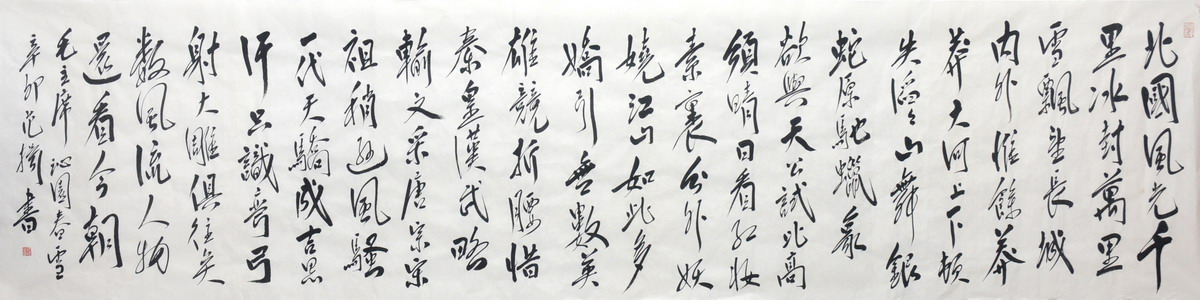 北國風光千
里冰封萬里
雪飄望長城
内外惟餘莽
莽大河上下頓
失滔々山舞銀
蛇原馳蠟象
欲與天公試比高
須晴日看紅妝
素裹分外妖
嬈江山如此多
嬌引無數英
雄競折腰惜
秦皇漢武略
輸文采唐宗宋
祖稍遜風騷
一代天驕成吉思
汗只識弯弓
射大雕俱往矣
數風流人物
還看今朝
毛主席 沁園春雪
辛卯范書